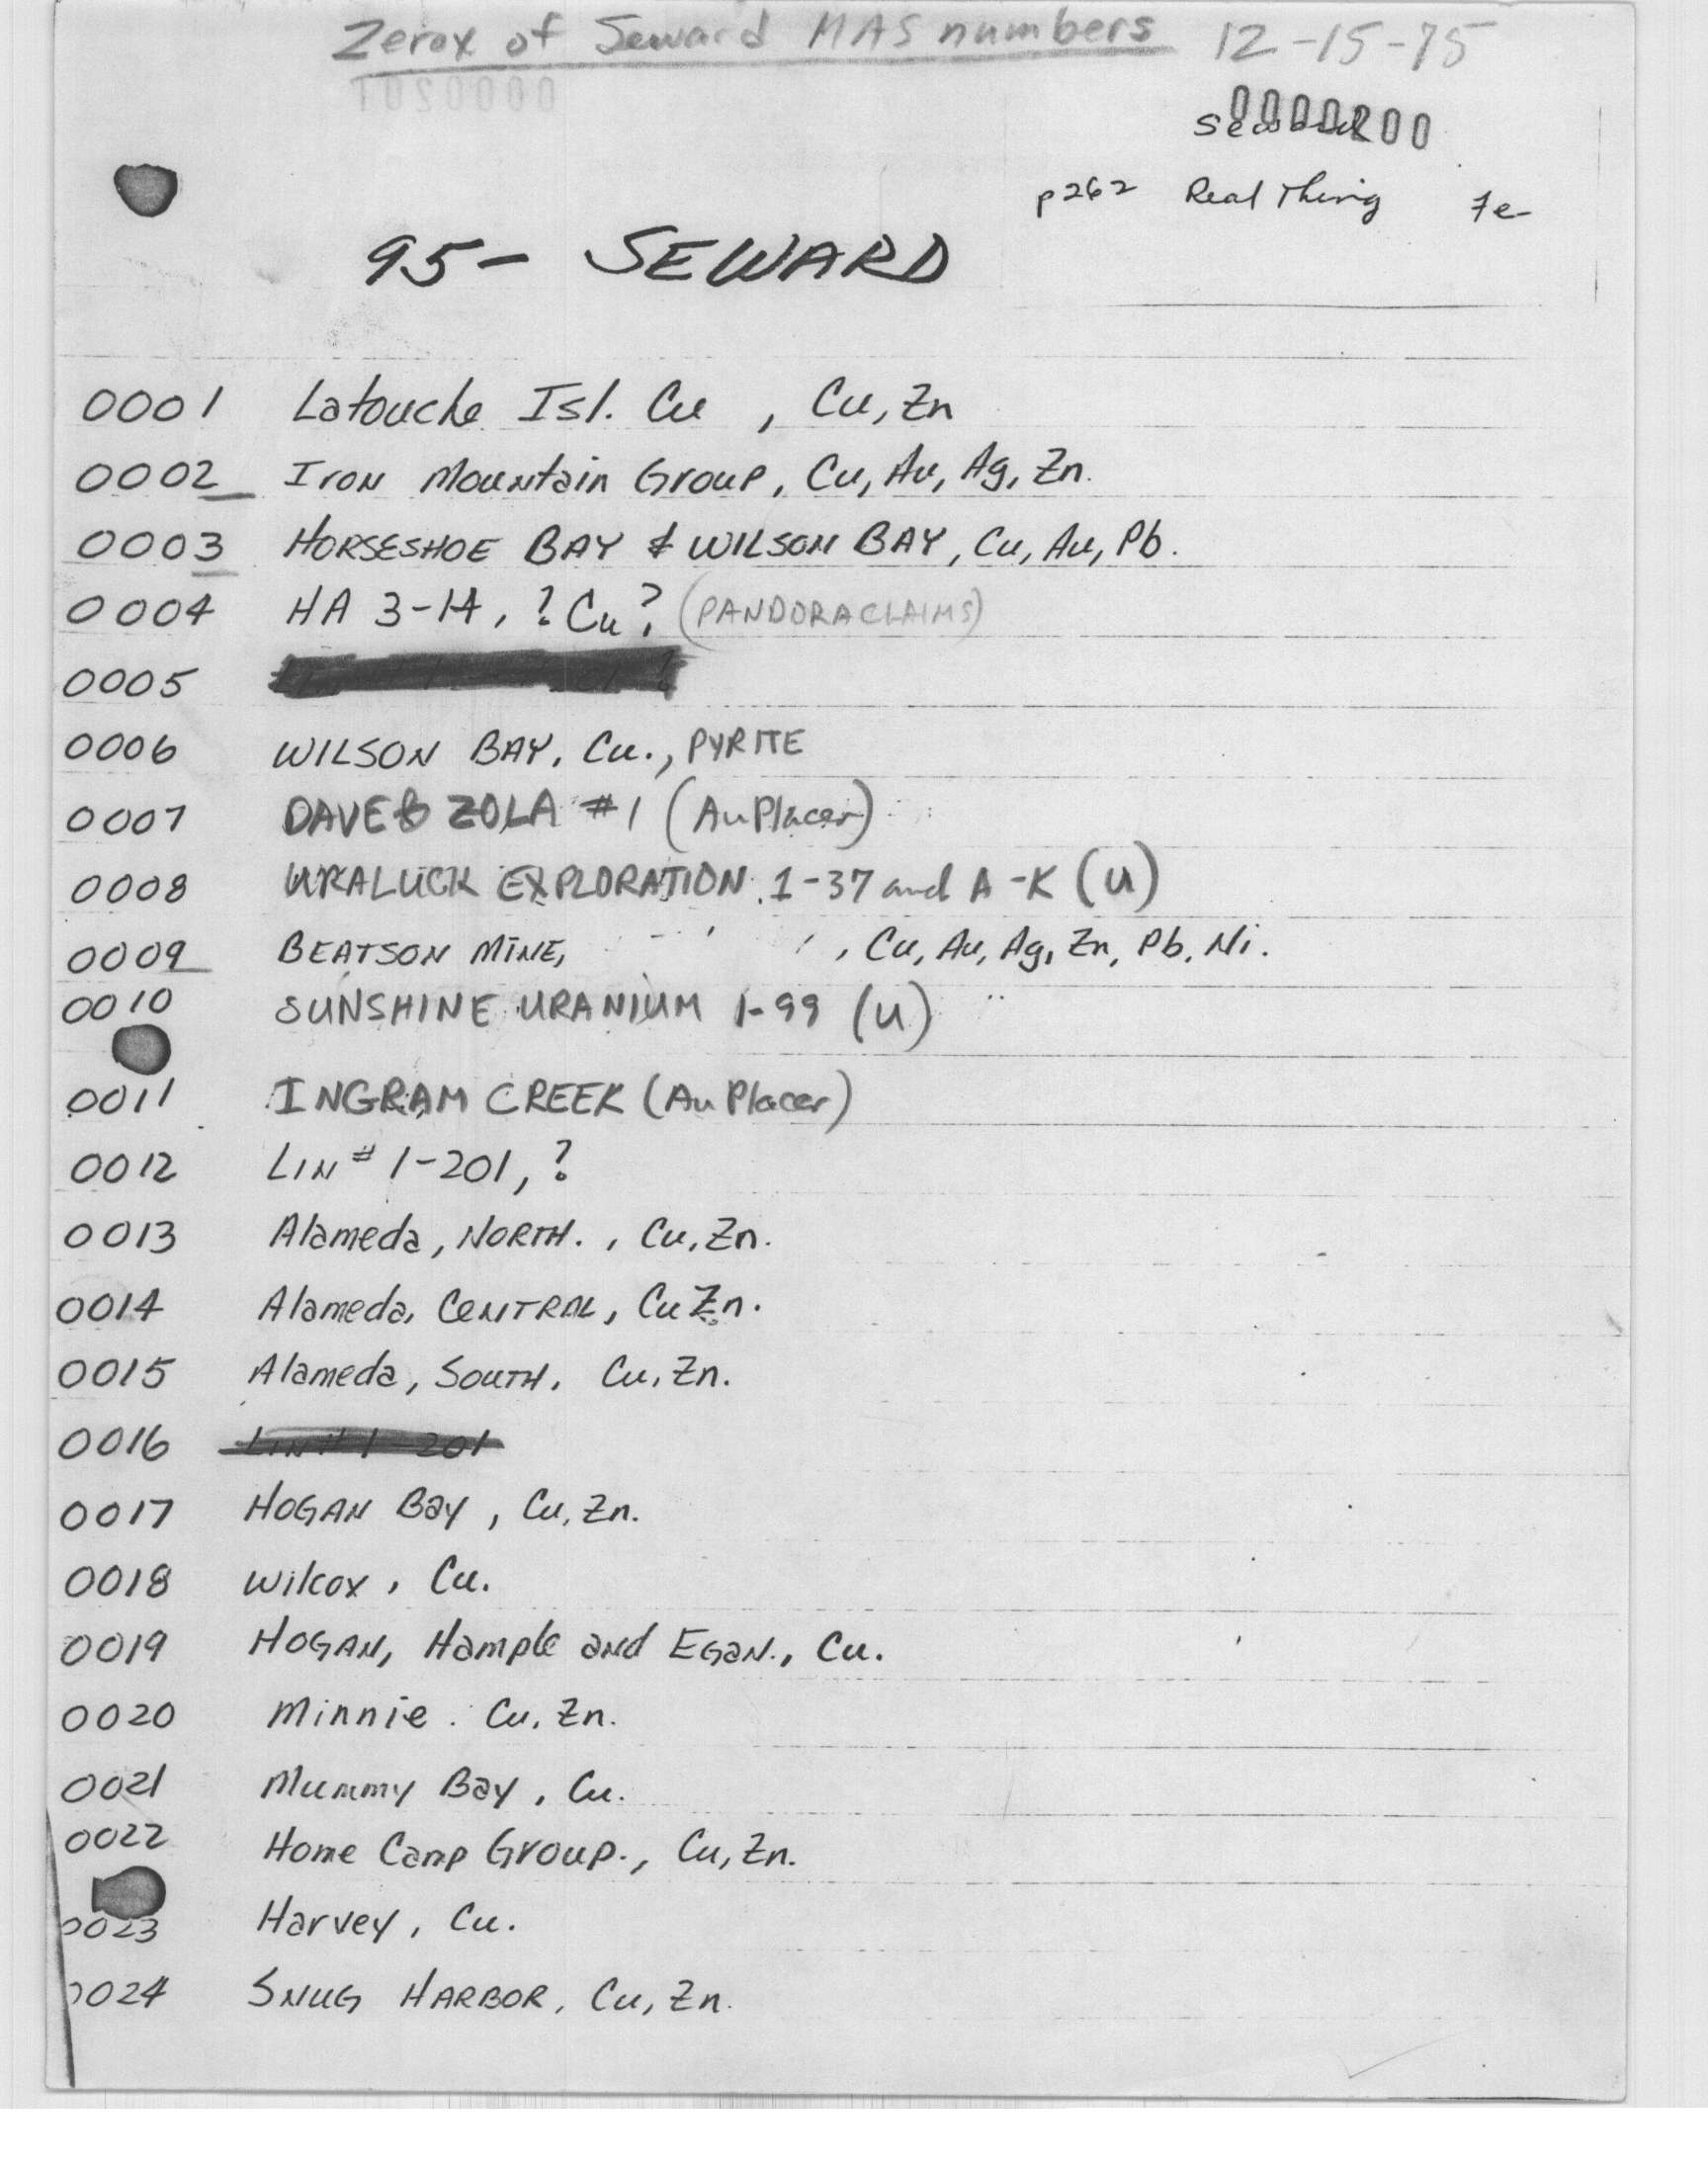 Zerox of Seward MAS numbers 12-15-75
0000200
p262 Real Thing Fe
95- SEWARD
0001 Latouche Isl. Cu , Cu, Zn
0002 Iron Mountain Group, Cu, Au, Ag, Zn.
0003 HORSESHOE BAY & WILSON BAY, Cu, Au, Pb.
0004 HA 3-14, ? Cu? (PANDORA CLAIMS)
0005
0006 WILSON BAY, Cu., PYRITE
0007 DAVE & ZOLA #1 (Au Placer)
0008 URALUCK EXPLORATION 1-37 and A-K (U)
0009 BEATSON MINE, , Cu, Au, Ag, Zn, Pb, Ni.
0010 SUNSHINE URANIUM 1-99 (U)
0011 INGRAM CREEK (Au Placer)
0012 LIN # 1-201, ?
0013 Alameda, NORTH. , Cu, Zn.
0014 Alameda, CENTRAL, Cu Zn.
0015 Alameda, SOUTH, Cu, Zn.
0016 LIN # 1-201
0017 HOGAN Bay, Cu, Zn.
0018 Wilcox, Cu.
0019 HOGAN, Hample and EGAN., Cu.
0020 Minnie. Cu, Zn.
0021 Mummy Bay, Cu.
0022 Home Camp Group., Cu, Zn.
0023 Harvey, Cu.
0024 SNUG HARBOR, Cu, Zn.